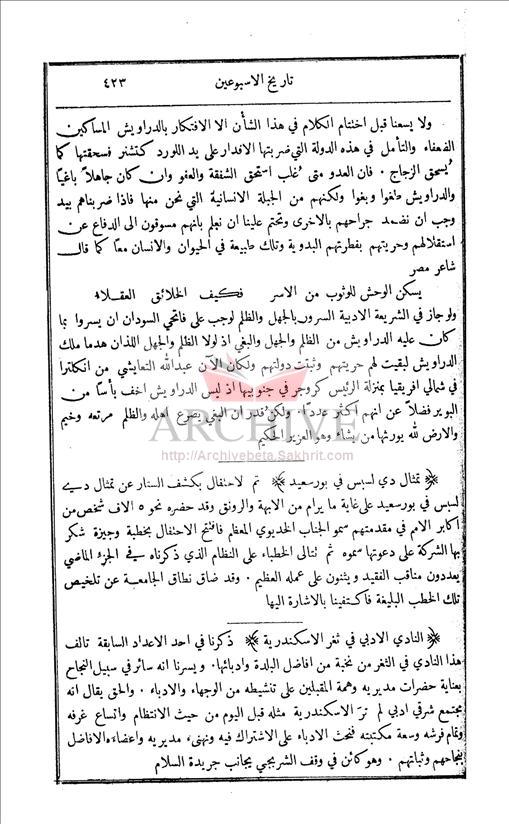 تاريخ الاسبوعين ٤٢٣
ولا يسعنا قبل اختتام الكلام في هذا الشأن الا الافتكار بالدراويش المساكين
الضعفاء والتأمل في هذه الدولة التي ضربتها الاقدار على يد اللورد كتشنر فسحقتها كما
يُسحق الزجاج . فان العدو متى غلب استحق الشفقة والعفو وان كان جاهلاً باغيًا
والدراويش طغوا وبغوا ولكنهم من الجبلة الانسانية التي نحن منها فاذا ضربناهم بيد
وجب ان نضمد جراحهم بالاخرى وتحتم علينا ان نعلم بانهم مسوقون الى الدفاع عن
استقلالهم وحريتهم بفطرتهم البدوية وتلك طبيعة في الحيوان والانسان معًا كما قال
شاعر مصر
يسكن الوحش للوثوب من الاسر فكيف الخلائق العقلاء
ولو جاز في الشريعة الادبية السرور بالجهل والظلم لوجب على فاتحي السودان ان يسروا بما
كان عليه الدراويش من الظلم والجهل والبغي اذ لولا الظلم والجهل اللذان هدما ملك
الدراويش لبقيت لهم حريتهم وثبتت دولتهم ولكان الآن عبدالله التعايشي من انكلترا
في شمالي افريقيا بمنزلة الرئيس كروجر في جنوبيها اذ ليس الدراويش اخف بأسًا من
البوير فضلاً عن انهم اكثر عددًا . ولكن قدر ان البغي يصرع اهله والظلم مرتعه وخيم
والارض لله يورثها من يشاء وهو العزيز الحكيم
ARCHIVE
http://Archivebeta.Sakhrit.com
﴿ تمثال دي لسبس في بورسعيد ﴾ تم الاحتفال بكشف الستار عن تمثال دي
لسبس في بورسعيد على غاية ما يرام من الابهة والرونق وقد حضره نحو ٥ آلاف شخص من
اكابر الامم في مقدمتهم سمو الجناب الخديوي المعظم فافتتح الاحتفال بخطبة وجيزة شكر
بها الشركة على دعوتها سموه ثم تتالى الخطباء على النظام الذي ذكرناه في الجزء الماضي
يعددون مناقب الفقيد ويثنون على عمله العظيم . وقد ضاق نطاق الجامعة عن تلخيص
تلك الخطب البليغة فاكتفينا بالاشارة اليها
﴿ النادي الادبي في ثغر الاسكندرية ﴾ ذكرنا في احد الاعداد السابقة تالف
هذا النادي في الثغر من نخبة من افاضل البلدة وادبائها . ويسرنا انه سائر في سبيل النجاح
بعناية حضرات مديريه وهمة المقبلين على تنشيطه من الوجهاء والادباء . والحق يقال انه
مجتمع شرقي ادبي لم تر الاسكندرية مثله قبل اليوم من حيث الانتظام واتساع غرفه
وتمام فرشه وسعة مكتبته فنحث الادباء على الاشتراك فيه ونهنىء مديريه واعضاءه الافاضل
بنجاحهم وثباتهم . وهو كائن في وقف الشربجي بجانب جريدة السلام